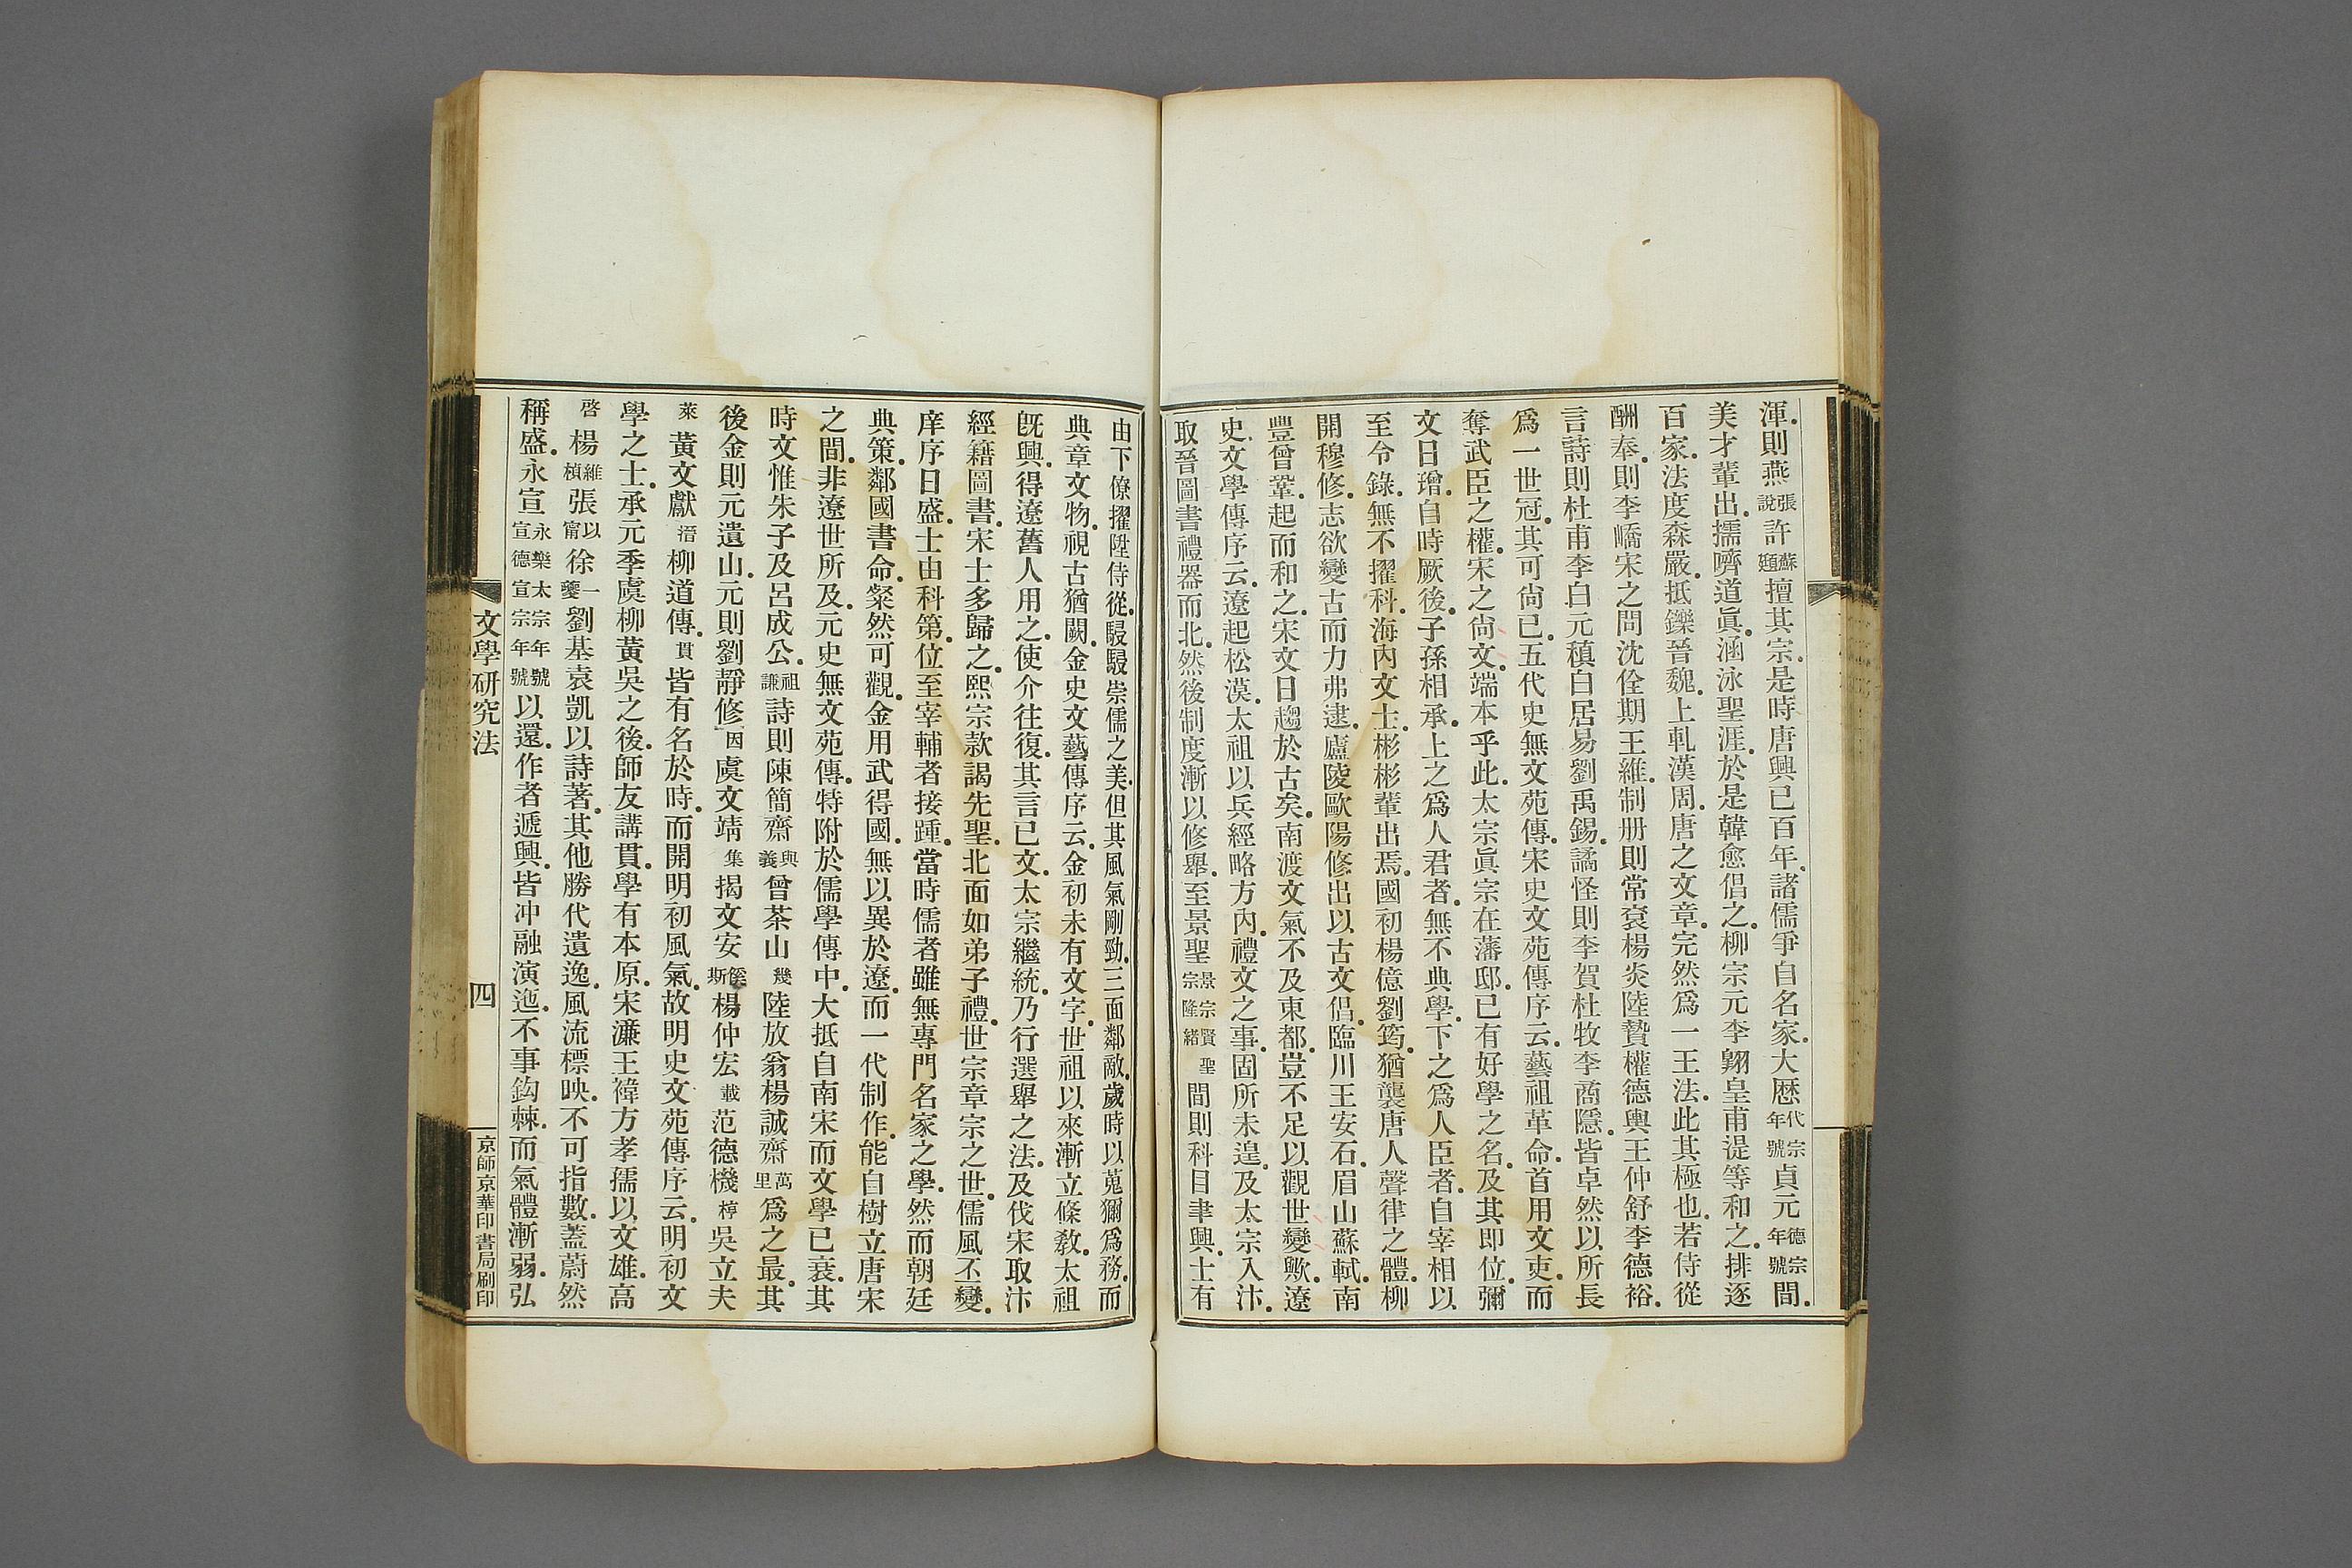 渾.則燕張說許蘇頲擅其宗.是時唐興已百年.諸儒爭自名家.大歷代宗年號貞元德宗年號間.
美才輩出.擩嚌道眞.涵泳聖涯.於是韓愈倡之.柳宗元李翺皇甫湜等和之.排逐
百家.法度森嚴.抵轢晉魏.上軋漢周.唐之文章.完然爲一王法.此其極也.若侍從
酬奉.則李嶠宋之問沈佺期王維.制册則常袞楊炎陸贄權德輿王仲舒李德裕.
言詩則杜甫李白元稹白居易劉禹錫.譎怪則李賀杜牧李商隱.皆卓然以所長
爲一世冠.其可尙已.五代史無文苑傳.宋史文苑傳序云.藝祖革命.首用文吏.而
奪武臣之權.宋之尙文.端本乎此.太宗眞宗在藩邸.已有好學之名.及其即位.彌
文日增.自時厥後.子孫相承.上之爲人君者.無不典學.下之爲人臣者.自宰相以
至令錄.無不擢科.海內文士.彬彬輩出焉.國初楊億劉筠.猶襲唐人聲律之體.柳
開穆修.志欲變古而力弗逮.廬陵歐陽修出.以古文倡.臨川王安石.眉山蘇軾.南
豐曾鞏.起而和之.宋文日趨於古矣.南渡文氣不及東都.豈不足以觀世變歟.遼
史文學傳序云.遼起松漠.太祖以兵經略方內.禮文之事.固所未遑.及太宗入汴.
取晉圖書禮器而北.然後制度漸以修舉.至景聖景宗賢聖宗隆緒間則科目聿興.士有
由下僚擢陞侍從.駸駸崇儒之美.但其風氣剛勁.三面鄰敵.歲時以蒐獮爲務.而
典章文物.視古猶闕.金史文藝傳序云.金初未有文字.世祖以來漸立條敎.太祖
旣興.得遼舊人用之.使介往復.其言已文.太宗繼統.乃行選舉之法.及伐宋取汴
經籍圖書.宋士多歸之.熙宗款謁先聖.北面如弟子禮.世宗章宗之世.儒風丕變.
庠序日盛.士由科第.位至宰輔者接踵.當時儒者雖無專門名家之學.然而朝廷
典策.鄰國書命.粲然可觀.金用武得國.無以異於遼.而一代制作.能自樹立唐宋
之間.非遼世所及.元史無文苑傳.特附於儒學傳中.大抵自南宋而文學已衰.其
時文惟朱子及呂成公.祖謙詩則陳簡齋與義曾茶山幾陸放翁楊誠齋萬里爲之最.其
後金則元遺山.元則劉靜修因虞文靖集揭文安傒斯楊仲宏載范德機梈吳立夫
萊黃文獻溍柳道傳.貫皆有名於時.而開明初風氣.故明史文苑傳序云.明初文
學之士.承元季虞柳黃吳之後.師友講貫.學有本原.宋濂王禕方孝孺以文雄.高
啓楊維楨張以甯徐一夔劉基袁凱以詩著.其他勝代遺逸.風流標映.不可指數.蓋蔚然
稱盛.永宣永樂太宗年號宣德宣宗年號以還.作者遞興.皆冲融演迤.不事鈎棘.而氣體漸弱.弘
文學研究法
四
京師京華印書局刷印